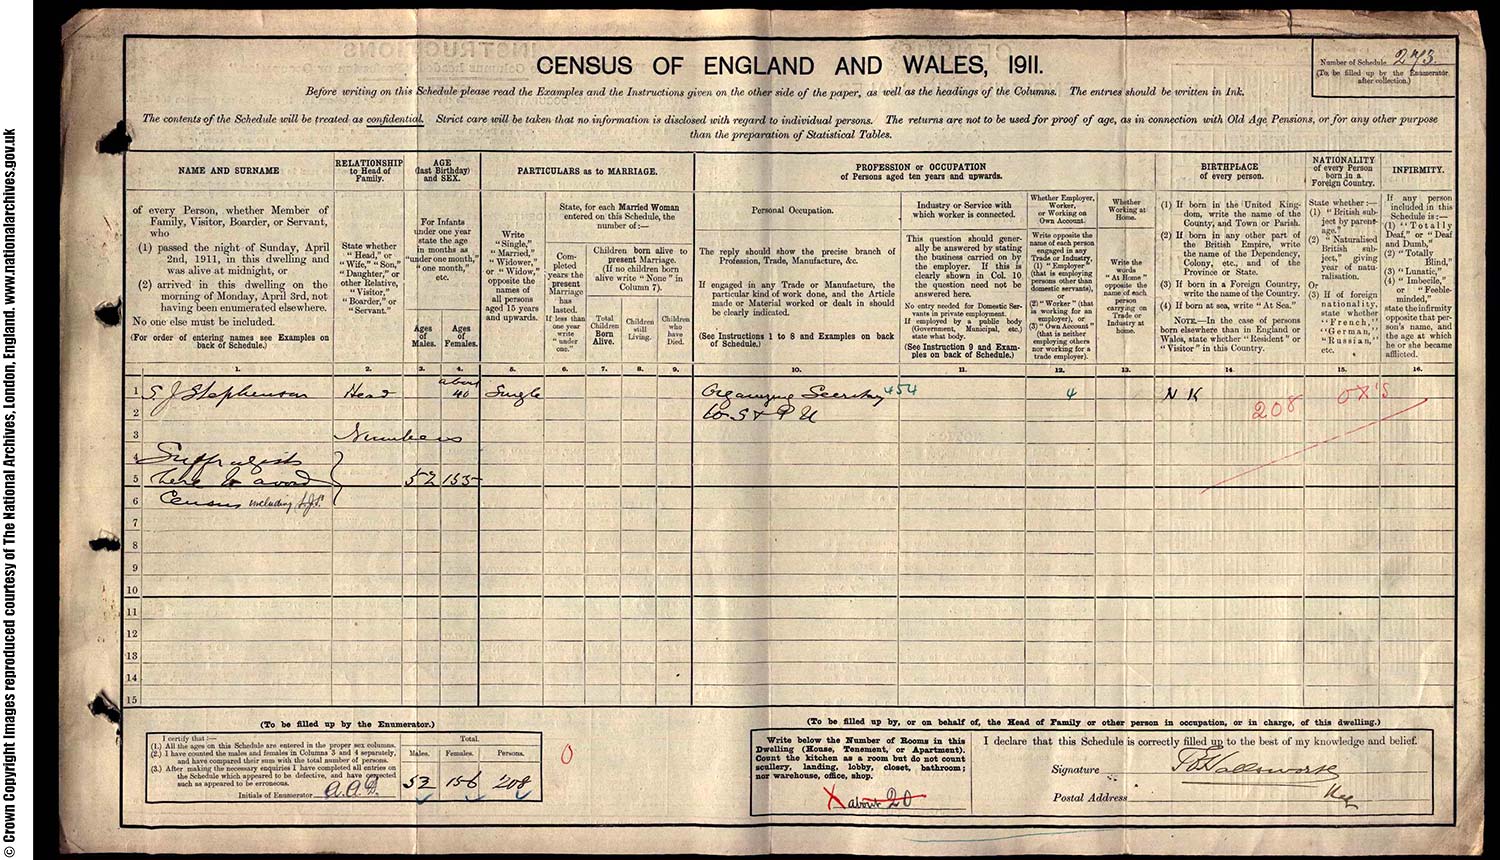 CENSUS OF ENGLAND AND WALES, 1911.
Number of Schedule 273.
(To be filled up by the Enumerator
after collection.)
Before writing on this Schedule please read the Examples and the Instructions given on the other side of the paper, as well as the headings of the Columns. The entries should be written in Ink.
The contents of the Schedule will be treated as confidential. Strict care will be taken that no information is disclosed with regard to individual persons. The returns are not to be used for proof of age, as in connection with Old Age Pensions, or for any other purpose
than the preparation of Statistical Tables.
NAME AND SURNAME
of every Person, whether Member of
Family, Visitor, Boarder, or Servant,
who
(1) passed the night of Sunday, April
2nd, 1911, in this dwelling and
was alive at midnight, or
(2) arrived in this dwelling on the
morning of Monday, April 3rd, not
having been enumerated elsewhere.
No one else must be included.
(For order of entering names see Examples on
back of Schedule.)
RELATIONSHIP
to Head of
Family.
State whether
"Head," or
"Wife," "Son,"
"Daughter," or
other Relative,
"Visitor,"
"Boarder," or
"Servant."
AGE
(last Birthday)
and SEX.
For Infants
under one year
state the age
in months as
"under one month,"
"one month,"
etc.
Ages
of
Males.
Ages
of
Females.
PARTICULARS as to MARRIAGE.
Write
"Single,"
"Married,"
"Widower,"
or "Widow,"
opposite the
names of
all persons
aged 15 years
and upwards.
State, for each Married Woman
entered on this Schedule, the
number of:—
Com-
pleted
years the
present
Marriage
has
lasted.
If less than
one year
write
"under
one."
Children born alive to
present Marriage.
(If no children born
alive write "None" in
Column 7).
Total
Children
Born
Alive.
Children
still
Living.
Children
who
have
Died.
PROFESSION or OCCUPATION
of Persons aged ten years and upwards.
Personal Occupation.
The reply should show the precise branch of
Profession, Trade, Manufacture, &c.
If engaged in any Trade or Manufacture, the
particular kind of work done, and the Article
made or Material worked or dealt in should
be clearly indicated.
(See Instructions 1 to 8 and Examples on back
of Schedule.)
Industry or Service with
which worker is connected.
This question should gener-
ally be answered by stating
the business carried on by
the employer. If this is
clearly shown in Col. 10
the question need not be
answered here.
No entry needed for Domestic Ser-
vants in private employment.
If employed by a public body
(Government, Municipal, etc.)
state what body.
(See Instruction 9 and Exam-
ples on back of Schedule.)
Whether Employer,
Worker,
or Working on
Own Account.
Write opposite the
name of each person
engaged in any
Trade or Industry,
(1) "Employer"
(that is employing
persons other than
domestic servants),
or
(2) "Worker" (that
is working for an
employer), or
(3) "Own Account"
(that is neither
employing others
nor working for a
trade employer).
Whether
Working at
Home.
Write the
words
"At Home"
opposite the
name of each
person
carrying on
Trade or
Industry at
home.
BIRTHPLACE
of every person.
(1) If born in the United King-
dom, write the name of the
County, and Town or Parish.
(2) If born in any other part of
the British Empire, write
the name of the Dependency,
Colony, etc., and of the
Province or State.
(3) If born in a Foreign Country,
write the name of the Country.
(4) If born at sea, write "At Sea."
NOTE.—In the case of persons
born elsewhere than in England or
Wales, state whether "Resident" or
"Visitor" in this Country.
NATIONALITY
of every Person
born in a
Foreign Country.
State whether:—
(1) "British sub-
ject by parent-
age."
(2) "Naturalised
British sub-
ject," giving
year of natu-
ralisation.
Or
(3) If of foreign
nationality,
state whether
"French,"
"German,"
"Russian,"
etc.
INFIRMITY.
If any person
included in this
Schedule is:—
(1) "Totally
Deaf," or "Deaf
and Dumb,"
(2) "Totally
Blind,"
(3) "Lunatic,"
(4) "Imbecile,"
or "Feeble-
minded,"
state the infirmity
opposite that per-
son's name, and
the age at which
he or she became
afflicted.
1. 2. 3. 4. 5. 6. 7. 8. 9. 10. 11. 12. 13. 14. 15. 16.
1 S. J. Stephenson Head about 40 Single Organizing Secretary 454 4 N K 208 OX'S
2 W S & P U
3 Numbers
4 Suffragists
5 here to avoid 52 155
6 Census including S.J.S.
7
8
9
10
11
12
13
14
15
(To be filled up by the Enumerator.)
I certify that:—
(1.) All the ages on this Schedule are entered in the proper sex columns.
(2.) I have counted the males and females in Columns 3 and 4 separately,
and have compared their sum with the total number of persons.
(3.) After making the necessary enquiries I have completed all entries on
the Schedule which appeared to be defective, and have corrected
such as appeared to be erroneous.
Initials of Enumerator A.A.D.
Total.
Males. Females. Persons.
52 156 208
0
(To be filled up by, or on behalf of, the Head of Family or other person in occupation, or in charge, of this dwelling.)
Write below the Number of Rooms in this
Dwelling (House, Tenement, or Apartment).
Count the kitchen as a room but do not count
scullery, landing, lobby, closet, bathroom;
nor warehouse, office, shop.
X about 20
I declare that this Schedule is correctly filled up to the best of my knowledge and belief.
Signature
Reg
Postal Address
© Crown Copyright Images reproduced courtesy of The National Archives, London, England. www.nationalarchives.gov.uk